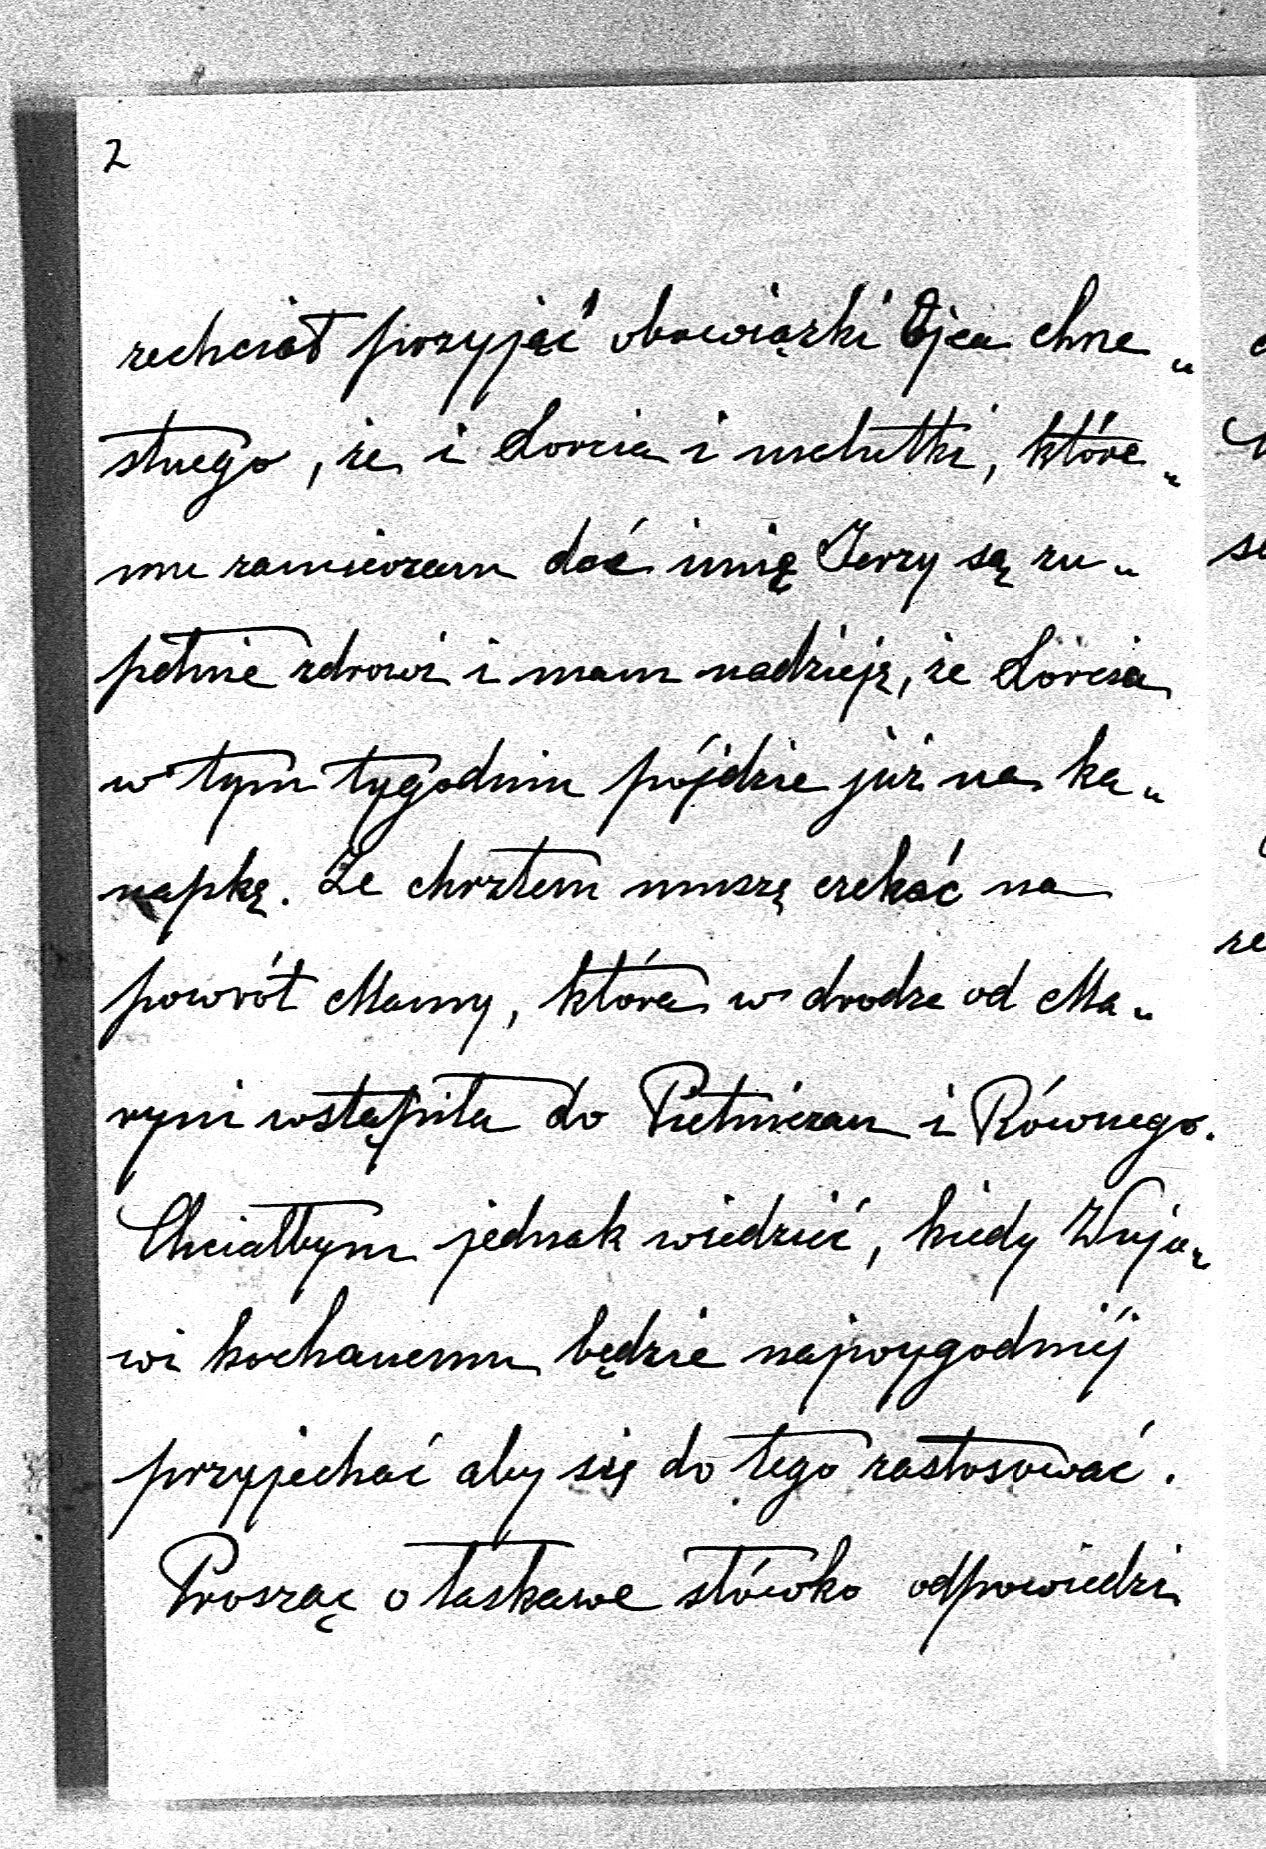 2
zechciał przyjąć obowiązki Ojca chrze„
stnego, że i Lorcia i malutki, które„
mu zamierzam dać imię Jerzy są zu„
pełnie zdrowi i mam nadzieję, że Lorcia
w tym tygodniu pójdzie już na ka„
napkę. Ze chrztem muszę czekać na
powrót Mamy, która w drodze od Ma„
ryni wstąpiła do Pietniczan i Równego.
Chciałbym jednak wiedzieć, kiedy Wujo„
wi kochanemu będzie najwygodniéj
przyjechać aby się do tego zastosować.
Prosząc o łaskawe słówko odpowiedzi